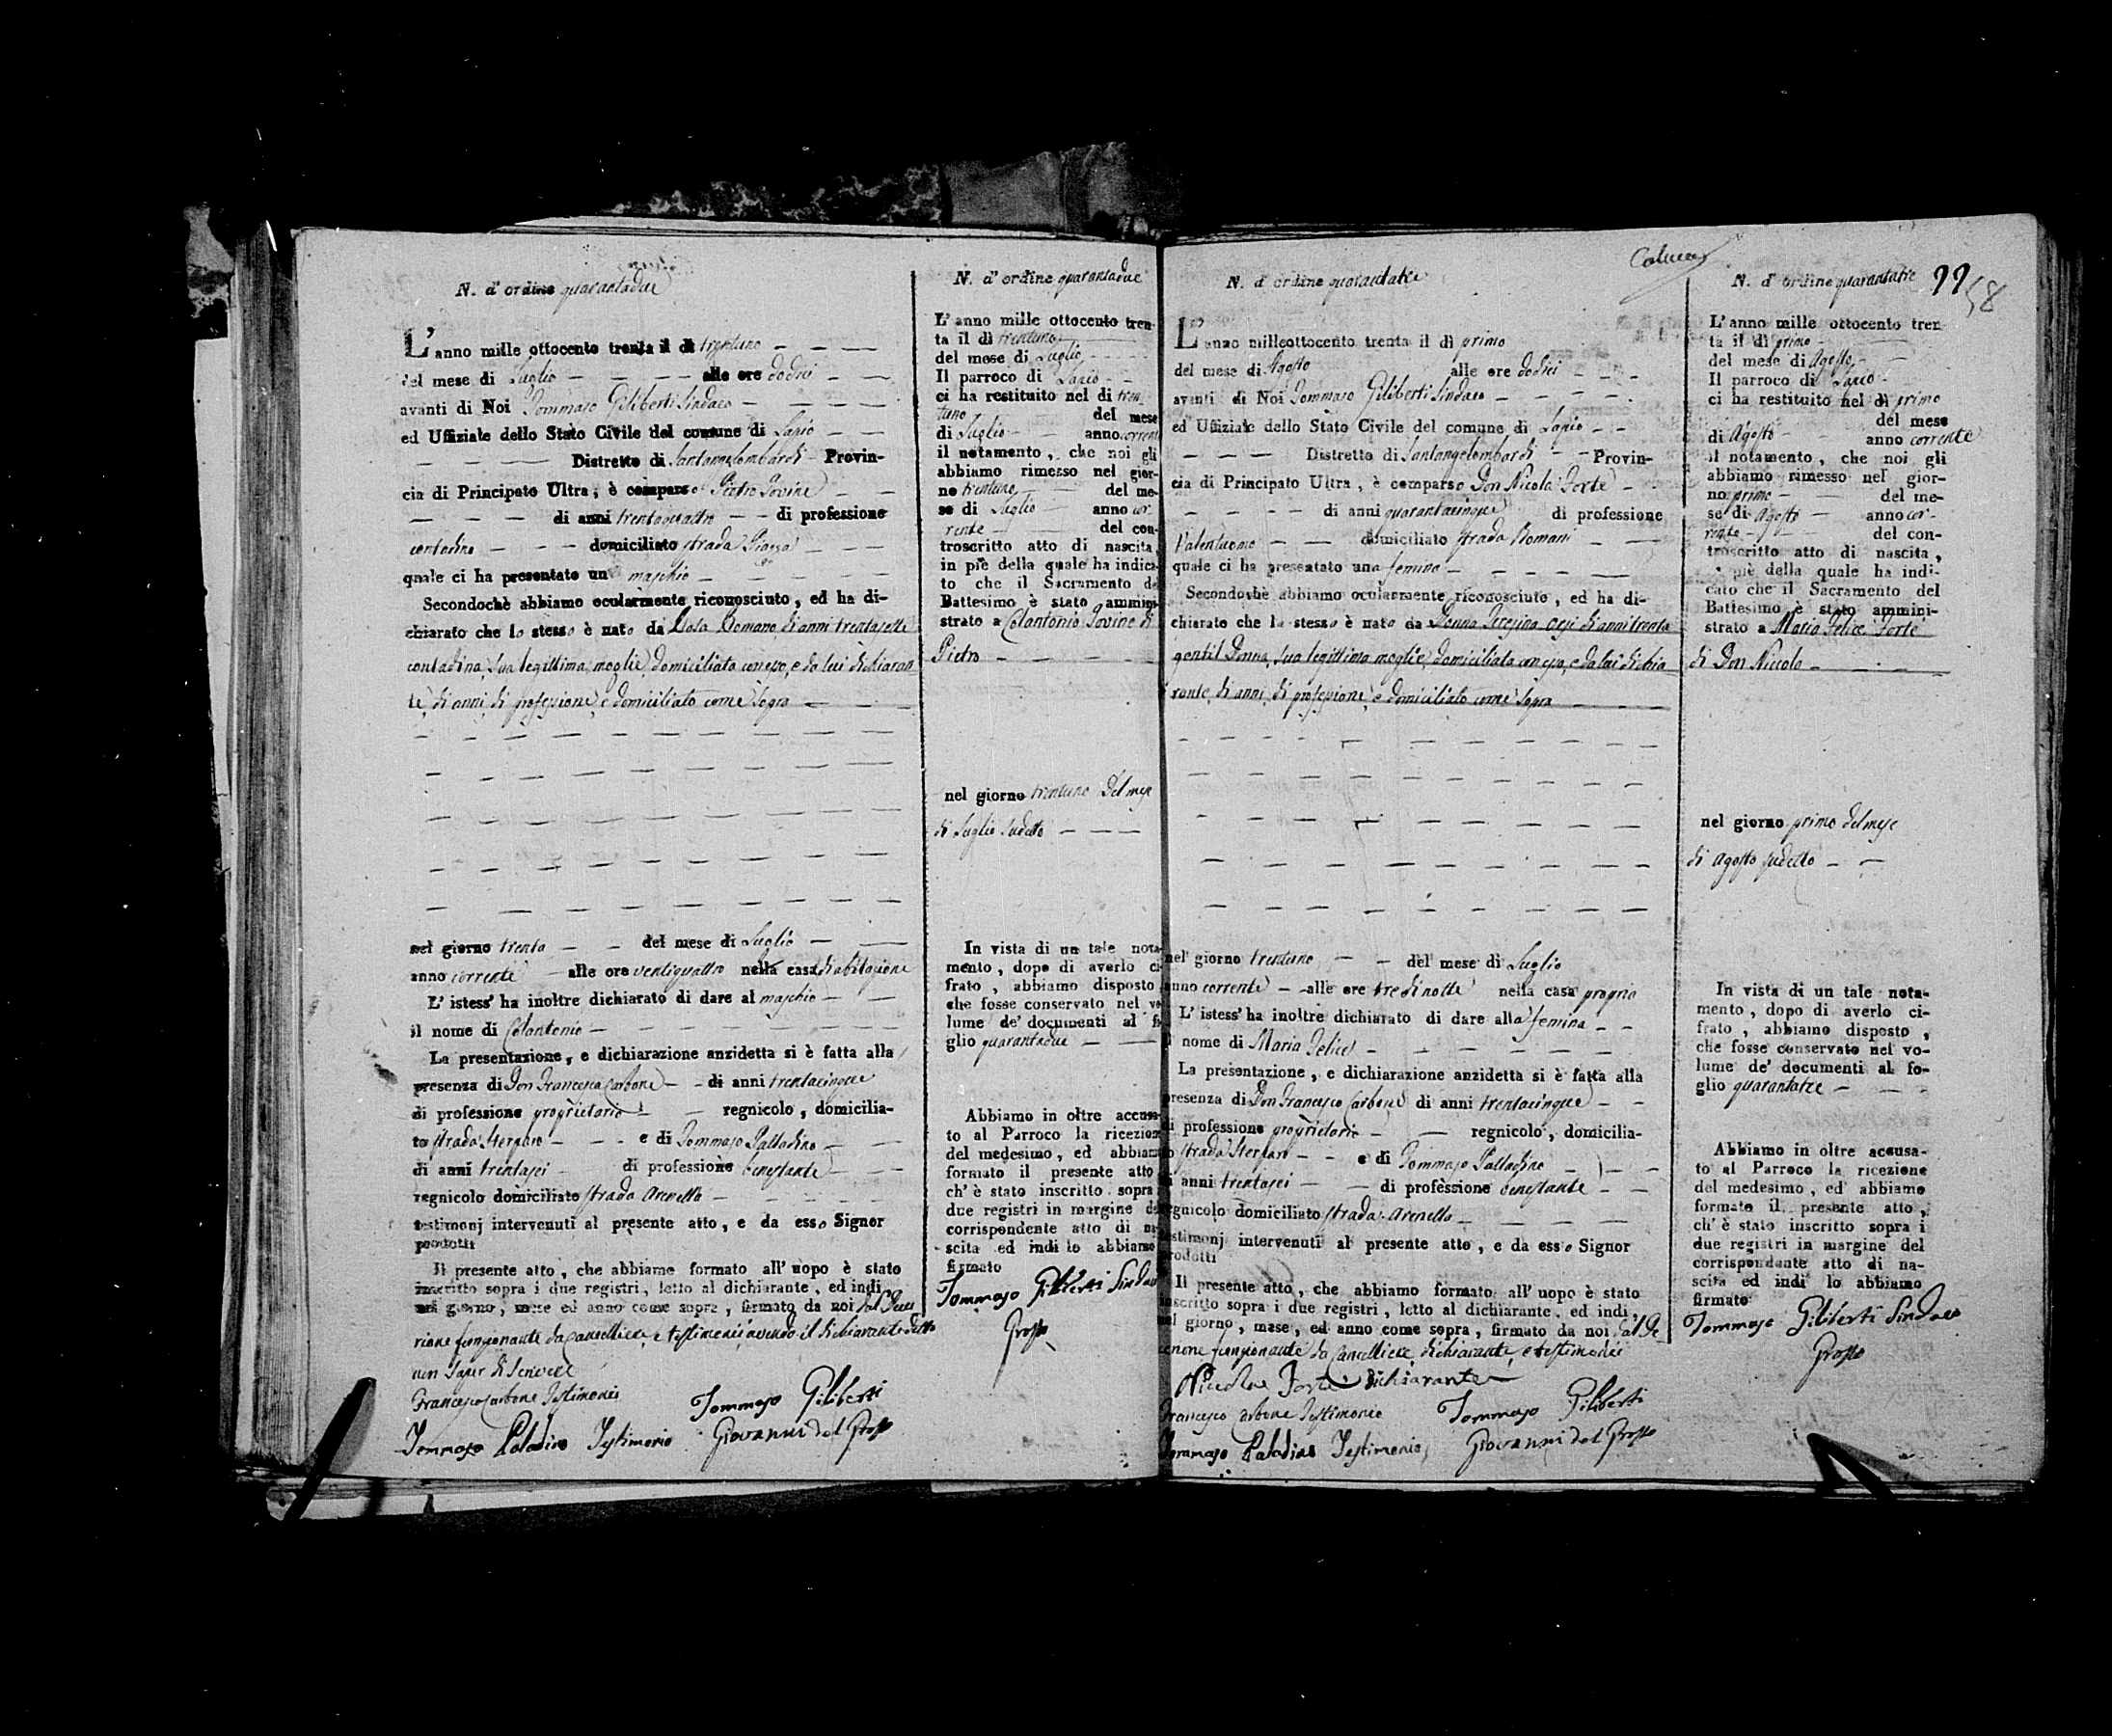 N. d'ordine quarantadue
L'anno mille ottocento trenta il di trentuno
del mese di Luglio alle ore dodici
avanti di Noi Tommaso Giliberti Sindaco
ed Uffiziale dello Stato Civile del comune di Lapio
Distretto di Santangelombardi Provin-
cia di Principato Ultra, è comparso Pietro Iovine
di anni trentaquattro di professione
contadino domiciliato strada Piazza
quale ci ha presentato un maschio
Secondochè abbiamo ocularmente riconosciuto, ed ha di-
chiarato che lo stesso è nato da Romano di anni trentasette
contadina, sua legittima moglie, domiciliata con esso, e da lui dichiaran
te, di anni, di professione, e domiciliato come sopra
nel giorno trenta del mese di Luglio
anno corrente alle ore ventiquattro nella casa di abitazione
L'istess' ha inoltre dichiarato di dare al maschio
il nome di Colantonio
La presentazione, e dichiarazione anzidetta si è fatta alla
presenza di Don Francesco Carbone di anni trentacinque
di professione proprietario regnicolo, domicilia-
to strada e di Tommaso Palladino
di anni trentasei di professione benestante
regnicolo domiciliato strada Arenella
testimonj intervenuti al presente atto, e da esso Signor
prodotti
Il presente atto, che abbiamo formato all'uopo è stato
inscritto sopra i due registri, letto al dichiarante, ed indi
nel giorno, mese ed anno come sopra, firmato da noi dal Decu
rione funzionante da Cancelliere, e testimonii avendo il dichiarante detto
non saper di scrivere
Francesco Carbone Testimonio
Tommaso Giliberti
Tommaso Paladino Testimonio Giovanni del Grosso
N. d'ordine quarantadue
L'anno mille ottocento tren-
ta il dì trentuno
del mese di Luglio
Il parroco di Lapio
ci ha restituito nel dì tren
tuno del mese
di Luglio anno corrente
il notamento, che noi gli
abbiamo rimesso nel gior-
no trentuno del me-
se di Luglio anno cor-
rente del con-
troscritto atto di nascita,
in piè della quale ha indica-
to che il Sacramento del
Battesimo è stato ammini-
strato a Colantonio Iovine di
Pietro
nel giorno trentuno del mese
di Luglio sudetto
In vista di un tale nota-
mento, dopo di averlo ci-
frato, abbiamo disposto
che fosse conservato nel vo-
lume de' documenti al fo-
glio quarantadue
Abbiamo in oltre accusa-
to al Parroco la ricezione
del medesimo, ed abbiamo
formato il presente atto
ch'è stato inscritto sopra
due registri in margine del
corrispondente atto di na-
scita ed indi lo abbiamo
firmato
Tommaso Giliberti Sindaco
Grosso
N. d'ordine quarantatre
L'anno milleottocento trenta il dì primo
del mese di Agosto alle ore dodici
avanti di Noi Tommaso Giliberti Sindaco
ed Uffiziale dello Stato Civile del comune di Lapio
Distretto di Santangelombardi Provin-
cia di Principato Ultra, è comparso Don Nicola Forte
di anni quarantacinque di professione
Valentuomo domiciliato strada Romani
quale ci ha presentato una femina
Secondochè abbiamo ocularmente riconosciuto, ed ha di-
chiarato che la stessa è nata da Donna Teresina di anni trenta
gentil Donna, sua legittima moglie, domiciliata con esso, e da lui dichia
rante, di anni, di professione, e domiciliato come sopra
nel giorno trentuno del mese di Luglio
anno corrente alle ore tre di notte nella casa propria
L'istess' ha inoltre dichiarato di dare alla femina
il nome di Maria Felice
La presentazione, e dichiarazione anzidetta si è fatta alla
presenza di Don Francesco Carbone di anni trentacinque
di professione proprietario regnicolo, domicilia-
to strada e di Tommaso Palladino
di anni trentasei di professione benestante
regnicolo domiciliato strada Arenella
testimonj intervenuti al presente atto, e da esso Signor
prodotti
Il presente atto, che abbiamo formato all'uopo è stato
inscritto sopra i due registri, letto al dichiarante, ed indi
nel giorno, mese, ed anno come sopra, firmato da noi dal De
curione funzionante da Cancelliere, dichiarante, e testimonii
Nicola Forte dichiarante
Francesco Carbone Testimonio Tommaso Giliberti
Tommaso Paladino Testimonio Giovanni del Grosso
N. d'ordine quarantatre 99
58
L'anno mille ottocento tren
ta il dì primo
del mese di Agosto
Il parroco di Lapio
ci ha restituito nel dì primo
del mese
di Agosto anno corrente
il notamento, che noi gli
abbiamo rimesso nel gior-
no primo del me-
se di Agosto anno cor-
rente del con-
troscritto atto di nascita,
piè della quale ha indi-
cato che il Sacramento del
Battesimo è stato ammini-
strato a Maria Felice Forte
di Don Niccola
nel giorno primo del mese
di Agosto sudetto
In vista di un tale nota-
mento, dopo di averlo ci-
frato, abbiamo disposto,
che fosse conservato nel vo-
lume de' documenti al fo-
glio quarantatre
Abbiamo in oltre accusa-
to al Parroco la ricezione
del medesimo, ed abbiamo
formato il presente atto,
ch'è stato inscritto sopra i
due registri in margine del
corrispondente atto di na-
scita ed indi lo abbiamo
firmato
Tommaso Giliberti Sindaco
Grosso